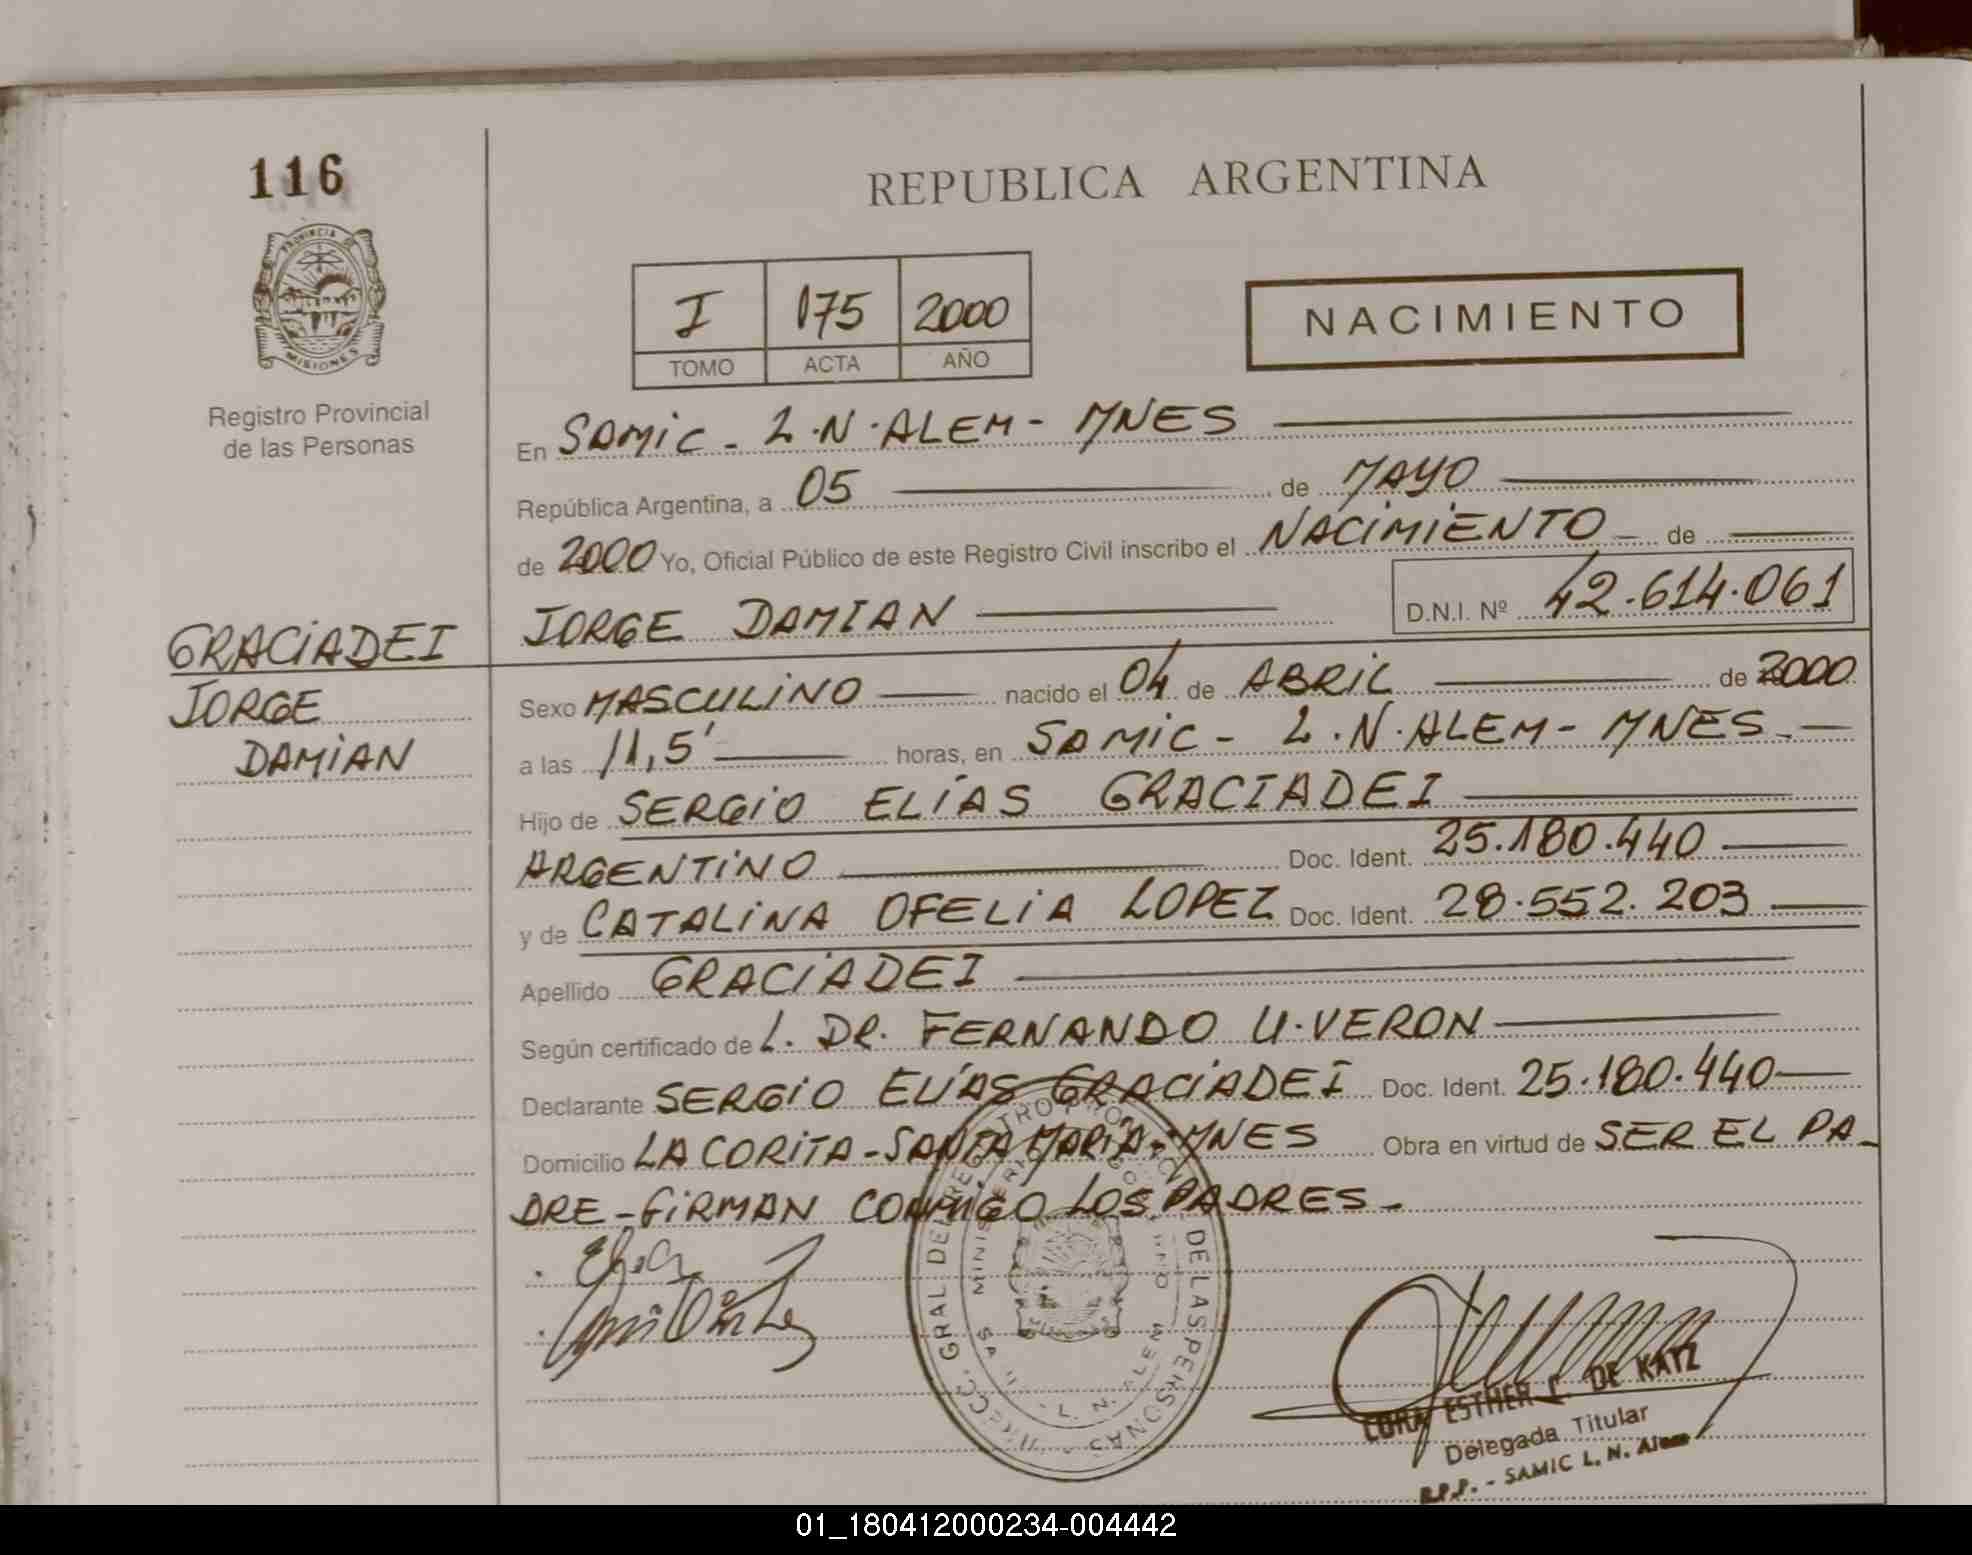 116
REPUBLICA ARGENTINA
PROVINCIA DE
MISIONES
Registro Provincial
de las Personas
I 175 2000
TOMO ACTA AÑO
NACIMIENTO
En SAMIC - L.N. ALEM - MNES
República Argentina, a 05 de MAYO
de 2000 Yo, Oficial Público de este Registro Civil inscribo el NACIMIENTO de
JORGE DAMIAN D.N.I. Nº 42.614.061
GRACIADEI
JORGE
DAMIAN
Sexo MASCULINO nacido el 04 de ABRIL de 2000
a las 11,5' horas, en SAMIC - L.N. ALEM - MNES -
Hijo de SERGIO ELÍAS GRACIADEI
ARGENTINO Doc. Ident. 25.180.440
y de CATALINA OFELIA LOPEZ Doc. Ident. 28.552.203
Apellido GRACIADEI
Según certificado de L. DR. FERNANDO U. VERON
Declarante SERGIO ELÍAS GRACIADEI Doc. Ident. 25.180.440
Domicilio LA CORITA - SANTA MARÍA - MNES Obra en virtud de SER EL PA-
DRE - FIRMAN CONMIGO LOS PADRES -
DIRECC. GRAL DEL REGISTRO PROV. DE LAS PERSONAS
L. N. ALEM
ESTHER C. DE KATZ
Delegada Titular
R.P.P. - SAMIC L. N. Alem
01_180412000234-004442